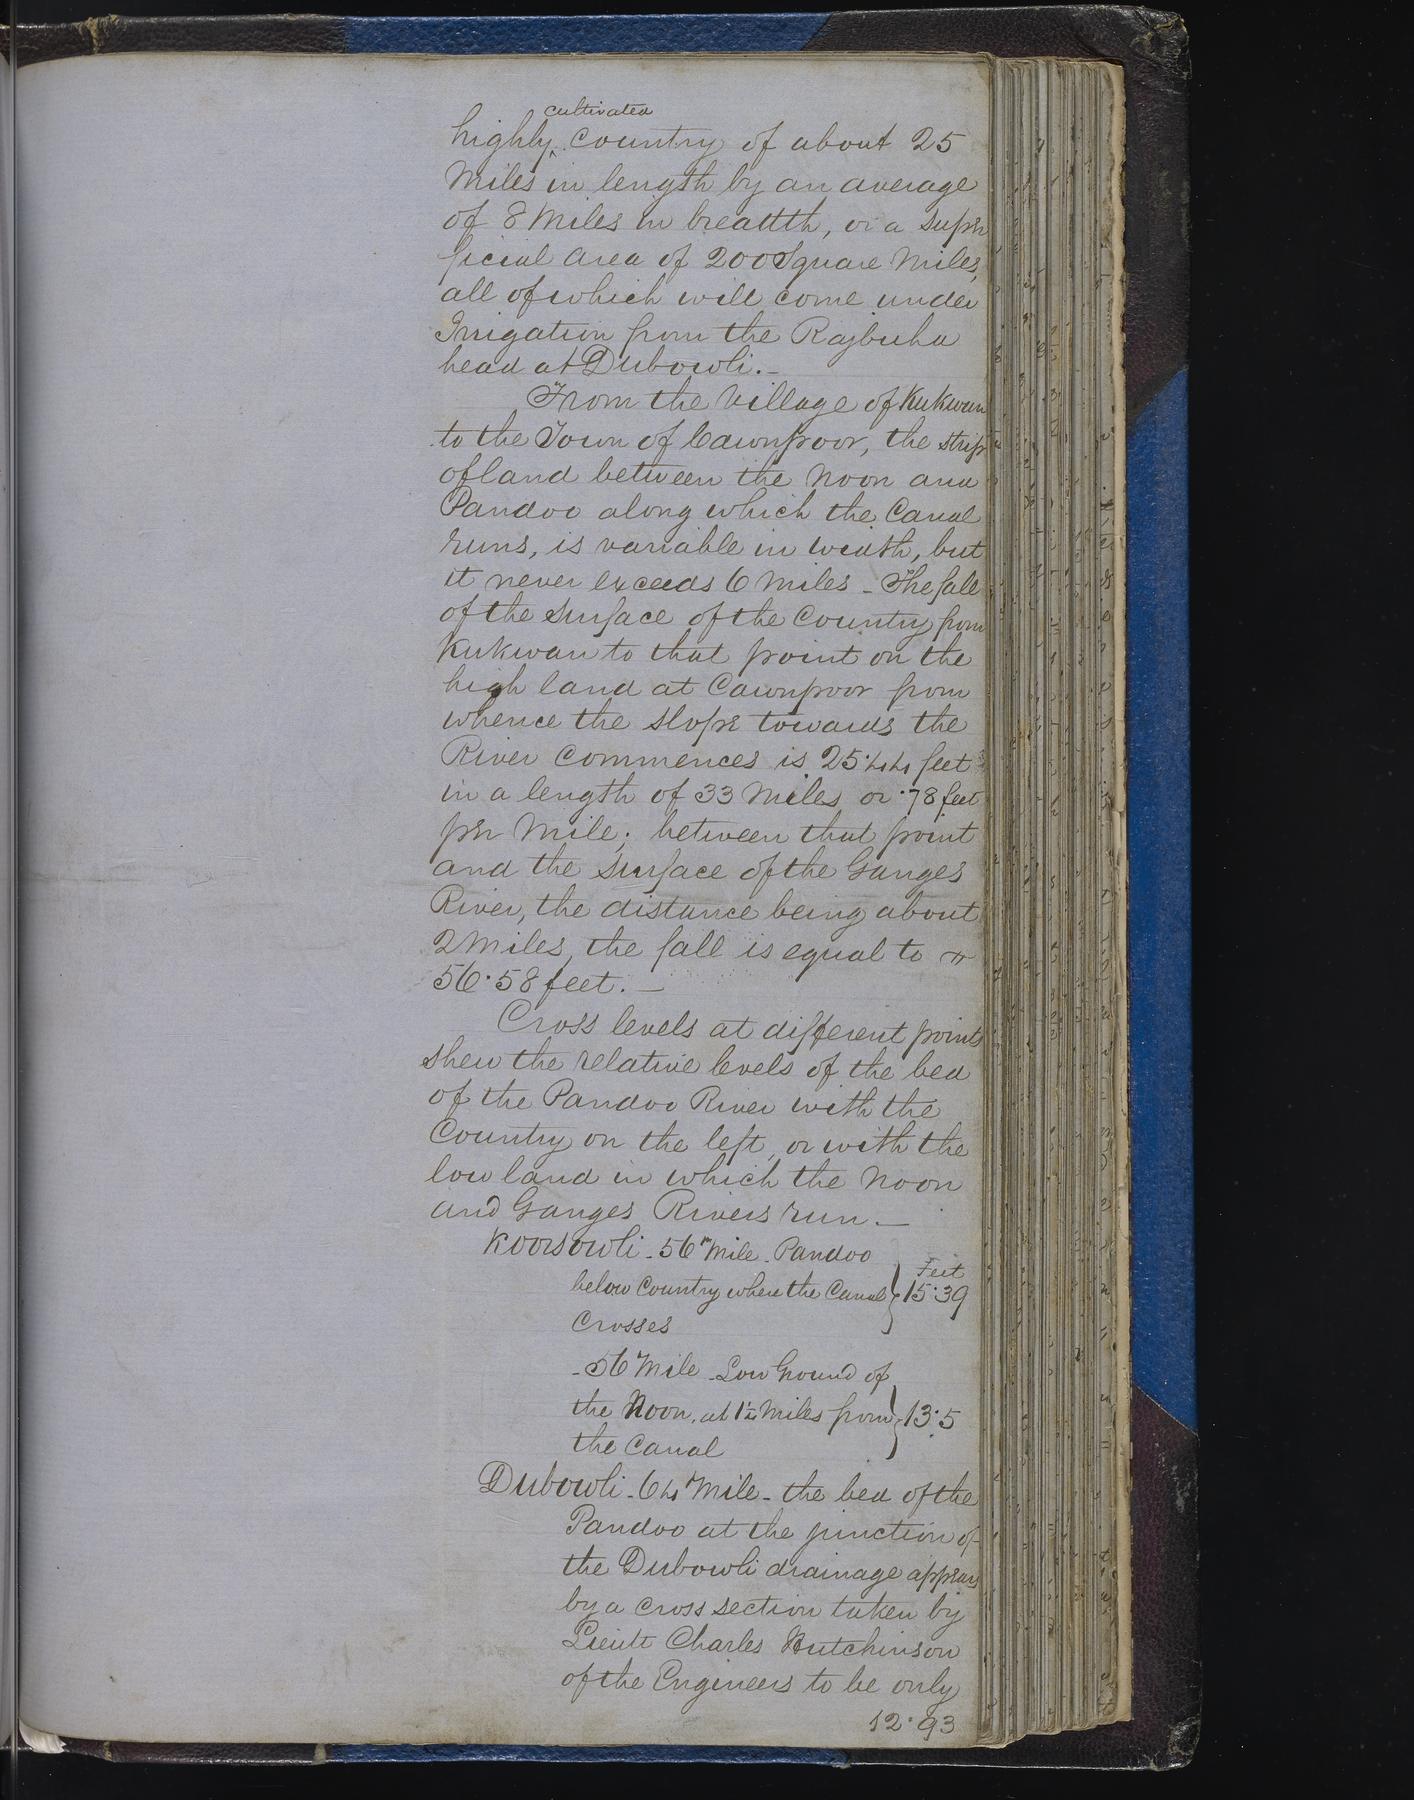 cultivated
highly country of about 25
Miles in length by an average
of 8 Miles in breadth, or a super
ficial area of 200 Square Miles,
all of which will come under
Irrigation from the Rajbuha
head at Dubowli. _
From the Village of Kukwan
to the Town of Cawnpoor, the strip
of land between the Noon and
Pandoo along which the Canal
runs, is variable in width, but
it never exceeds 6 Miles _ The fall
of the Surface of the Country from
Kukwan to that point on the
high land at Cawnpoor from
whence the slope towards the
River Commences is 25·44 feet
in a length of 33 Miles or ·78 feet
per Mile; between that point
and the surface of the Ganges
River, the distance being about
2 Miles, the fall is equal to
56·58 feet. _
Cross levels at different points
shew the relative levels of the bed
of the Pandoo River with the
Country on the left, or with the
low land in which the Noon
and Ganges Rivers run. _
Koorsowli _ 56th Mile _ Pandoo
below Country where the Canal
Crosses
Feet
15·39
_ 56 Mile _ Low Ground of
the Noon, at 1½ Miles from
the Canal
13·5
Dubowli _ 64 Mile _ the bed of the
Pandoo at the junction of
the Dubowli drainage appears
by a cross section taken by
Lieutt Charles Hutchinson
of the Engineers to be only
12·93